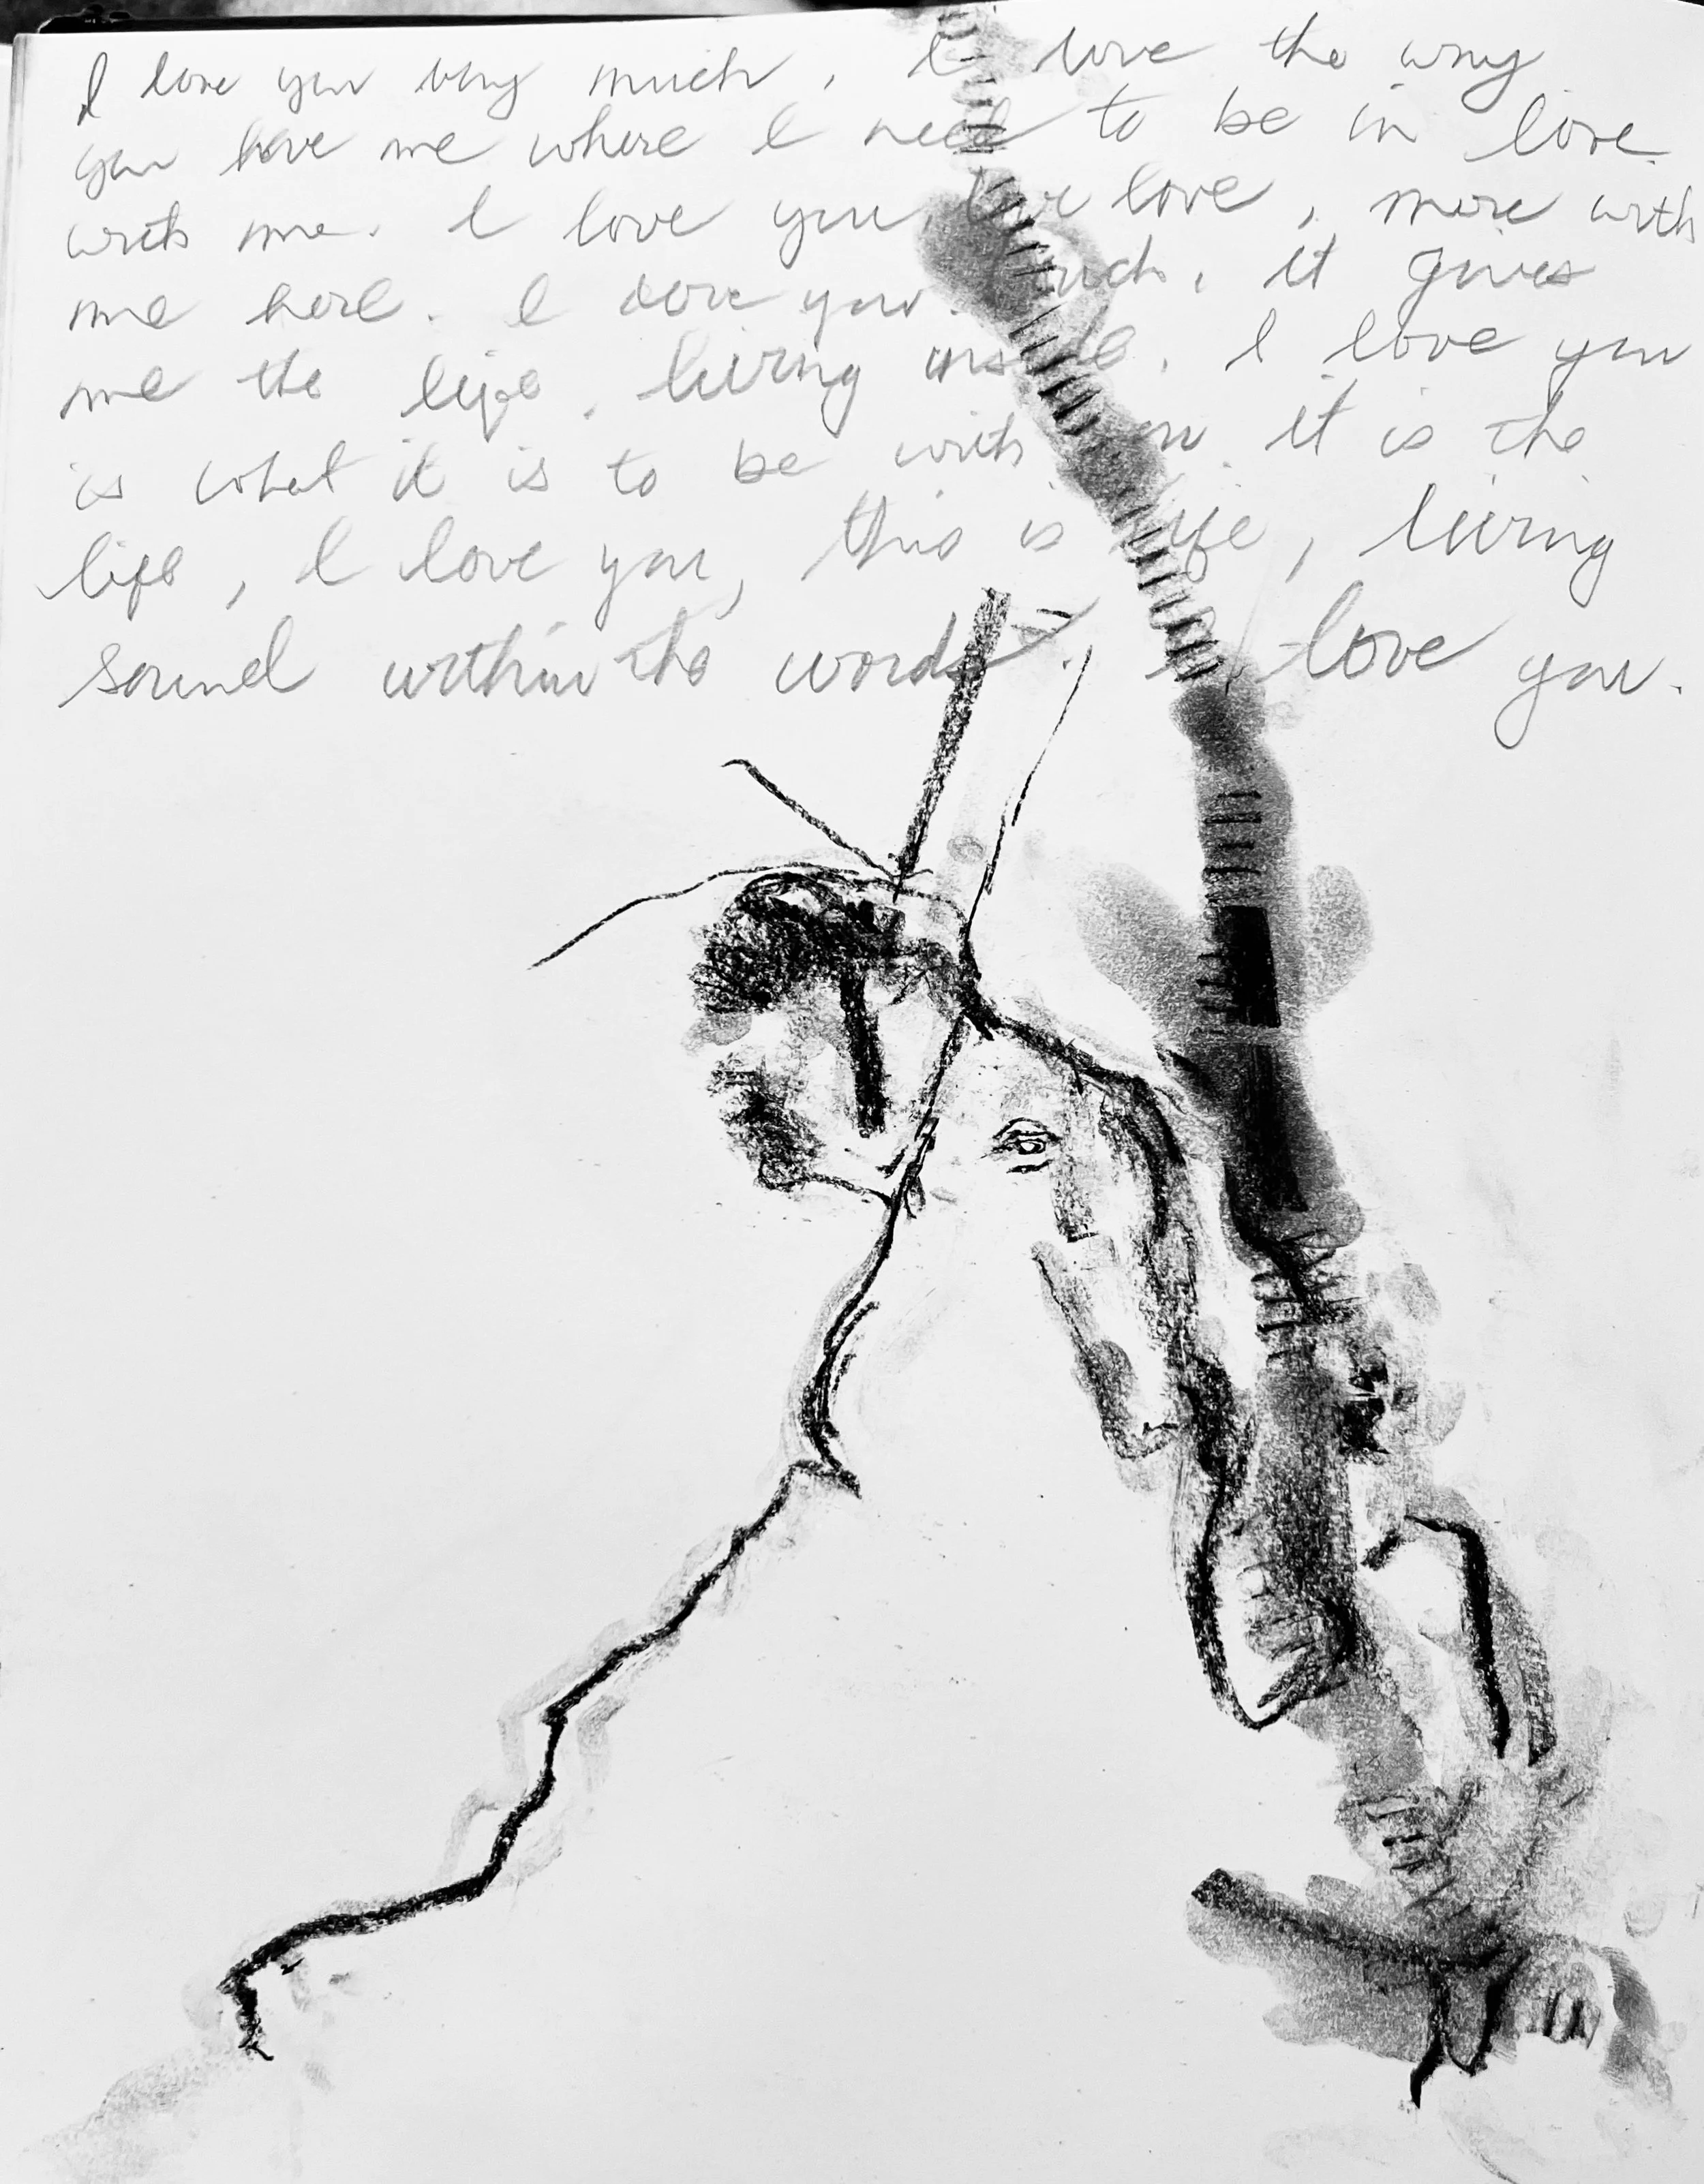 I love you very much, I love the way
you have me where I need to be in love
with me. I love you, love, more with
me here. I love you. much, it gives
me the life, living inside. I love you
is what it is to be with you. it is the
life, I love you, this is life, living
sound within the words. I love you.